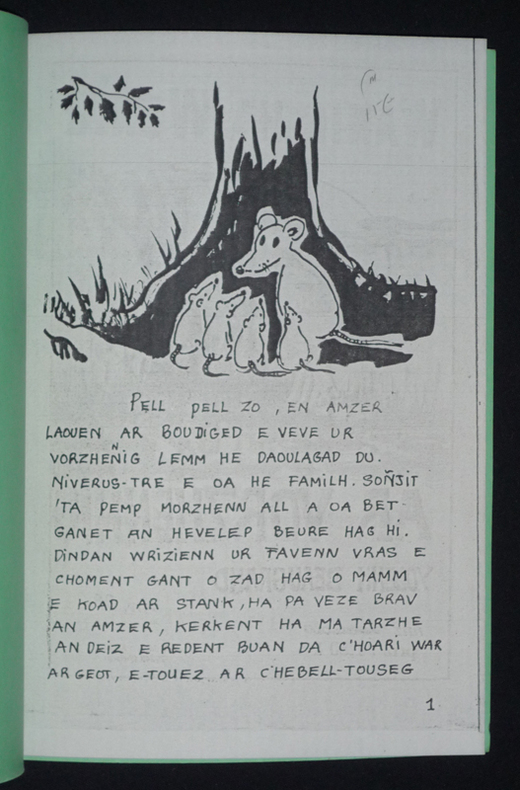 PELL PELL ZO, EN AMZER
LAOUEN AR BOUDIGED E VEVE UR
VORZHEÑIG LEMM HE DAOULAGAD DU.
NIVERUS-TRE E OA HE FAMILH. SOÑJIT
'TA PEMP MORZHENN ALL A OA BET-
GANET AN HEVELEP BEURE HAG HI.
DINDAN WRIZIENN UR FAVENN VRAS E
CHOMENT GANT O ZAD HAG O MAMM
E KOAD AR STANK, HA PA VEZE BRAV
AN AMZER, KERKENT HA MA TARZHE
AN DEIZ E REDENT BUAN DA C'HOARI WAR
AR GEOT, E-TOUEZ AR C'HEBELL-TOUSEG
1